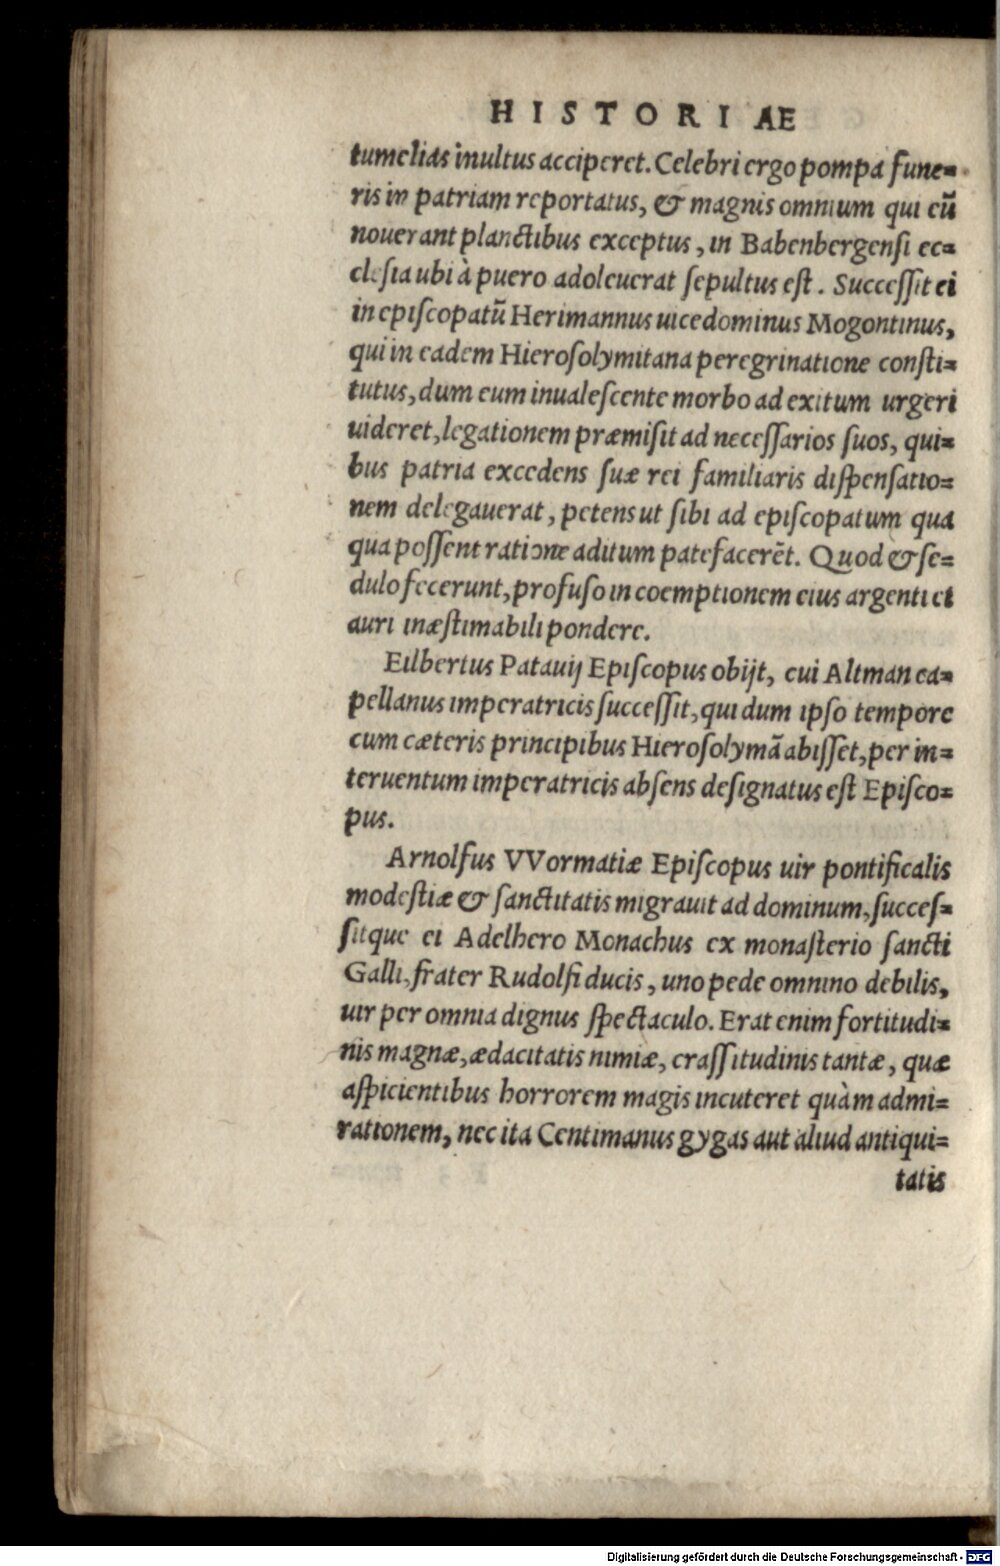 HISTORIAE
tumelias inultus acciperet. Celebri ergo pompa fune=
ris in patriam reportatus, & magnis omnium qui eũ
nouerant planctibus exceptus, in Babenbergenſi ec=
cleſia ubi à puero adoleuerat ſepultus eſt. Succeſſit ei
in epiſcopatũ Herimannus uicedominus Mogontinus,
qui in eadem Hieroſolymitana peregrinatione conſti=
tutus, dum eum inualeſcente morbo ad exitum urgeri
uideret, legationem præmiſit ad neceſſarios ſuos, qui=
bus patria excedens ſuæ rei familiaris diſpenſatio=
nem delegauerat, petens ut ſibi ad epiſcopatum qua
qua poſſent ratione aditum patefacerẽt. Quod & ſe=
dulo fecerunt, profuſo in coemptionem eius argenti et
auri inæſtimabili pondere.
Eilbertus Patauij Epiſcopus obijt, cui Altman ca=
pellanus imperatricis ſucceſſit, qui dum ipſo tempore
cum cæteris principibus Hieroſolymã abiſſet, per in=
teruentum imperatricis abſens deſignatus eſt Epiſco=
pus.
Arnolfus VVormatiæ Epiſcopus uir pontificalis
modeſtiæ & ſanctitatis migrauit ad dominum, ſucceſ=
ſitque ei Adelhero Monachus ex monaſterio ſancti
Galli, frater Rudolfi ducis, uno pede omnino debilis,
uir per omnia dignus ſpectaculo. Erat enim fortitudi=
nis magnæ, ædacitatis nimiæ, craſſitudinis tantæ, quæ
aſpicientibus horrorem magis incuteret quàm admi=
rationem, nec ita Centimanus gygas aut aliud antiqui=
tatis
Digitalisierung gefördert durch die Deutsche Forschungsgemeinschaft - DFG